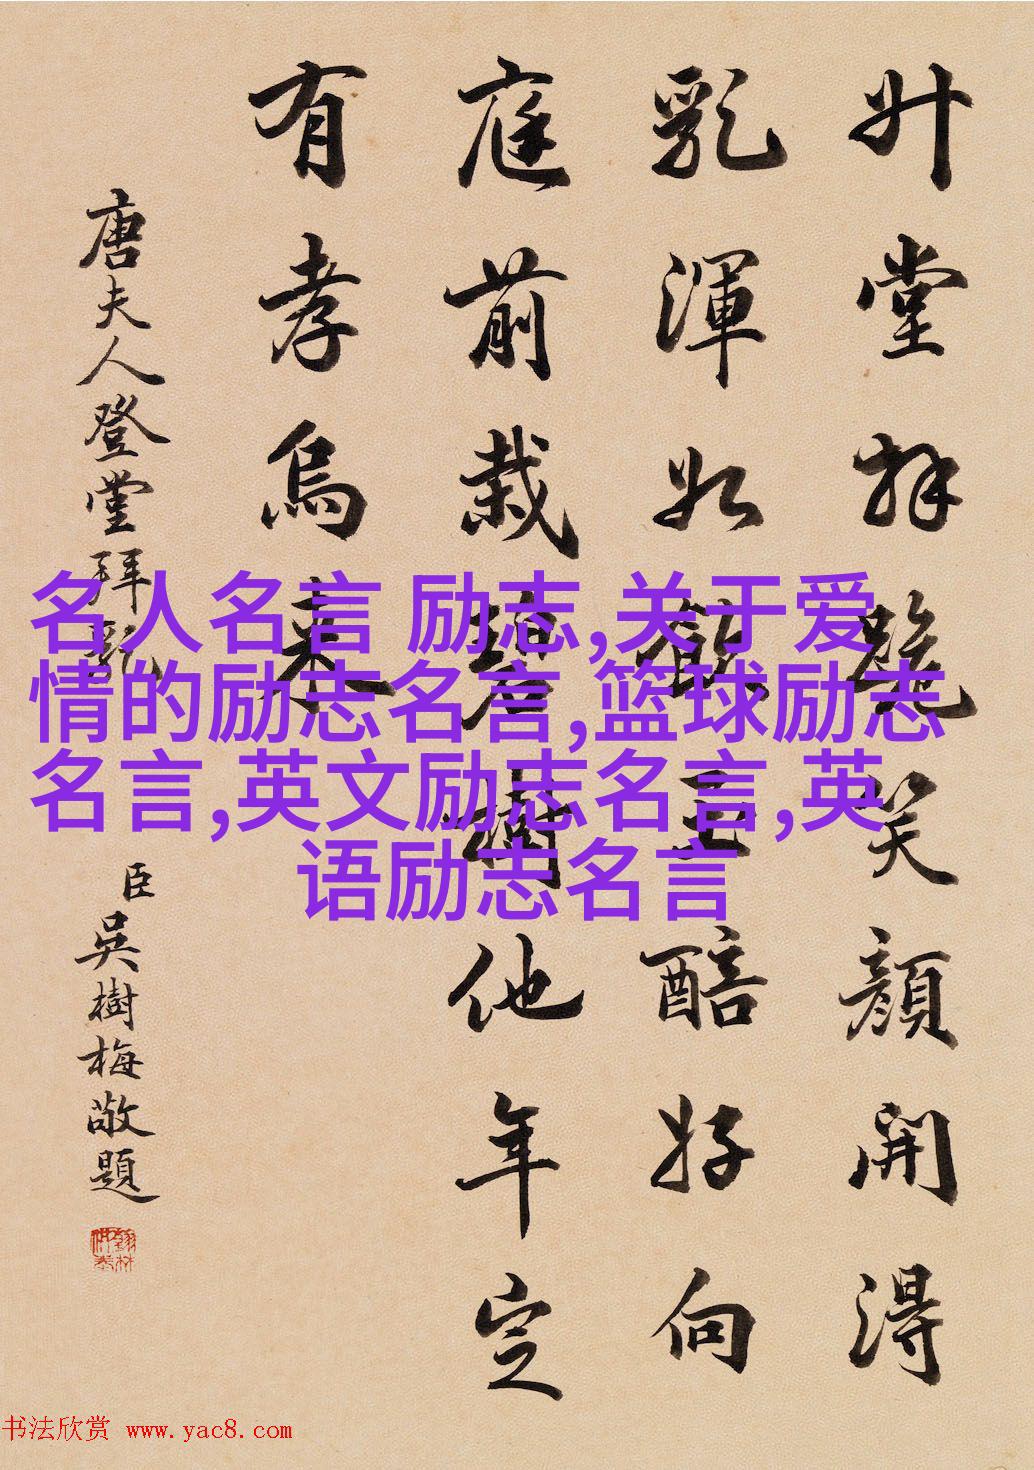 升堂拜笑顏開得
乳渾如飲玉醅好向
庭前栽碧樹他年定
有孝烏來
唐夫人登堂拜乳
臣吳樹梅敬題
名人名言 励志,关于爱
情的励志名言,篮球励志
名言,英文励志名言,英
语励志名言
书法欣赏 www.yac8.com